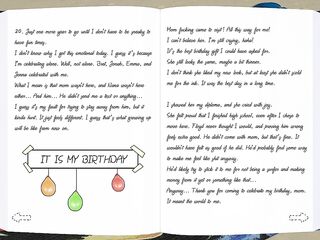 20. Just one more year to go until I don't have to be sneaky to
have fun times.
I don't know why I got this emotional today. I guess it's because
I'm celebrating alone. Well, not alone. Brat, Jonah, Emma, and
Jenna celebrated with me.
What I mean is that mom wasn't here, and Nana wasn't here
either... And him... He didn't send me a text or anything...
I guess it's my fault for trying to stay away from him, but it
kinda hurt. It just feels different. I guess that's what growing up
will be like from now on.
IT IS MY BIRTHDAY
Mom fucking came to visit! All this way for me!
I can't believe him. I'm still crying, haha!
It's the best birthday gift I could have asked for.
She still looks the same, maybe a bit thinner.
I don't think she liked my new look, but at least she didn't yell at
me for the ink. It was the best day in a long time.
I showed her my diploma, and she cried with joy.
She felt proud that I finished high school, even after I chose to
move here. Floyd never thought I would, and proving him wrong
feels extra good. He didn't come with mom, but that's fine. It
wouldn't have felt as good if he did. He'd probably find some way
to make me feel like shit anyway.
He'd likely try to stick it to me for not being a wafer and making
money from it yet or something like that...
Anyway... Thank you for coming to celebrate my birthday, mom.
It meant the world to me.